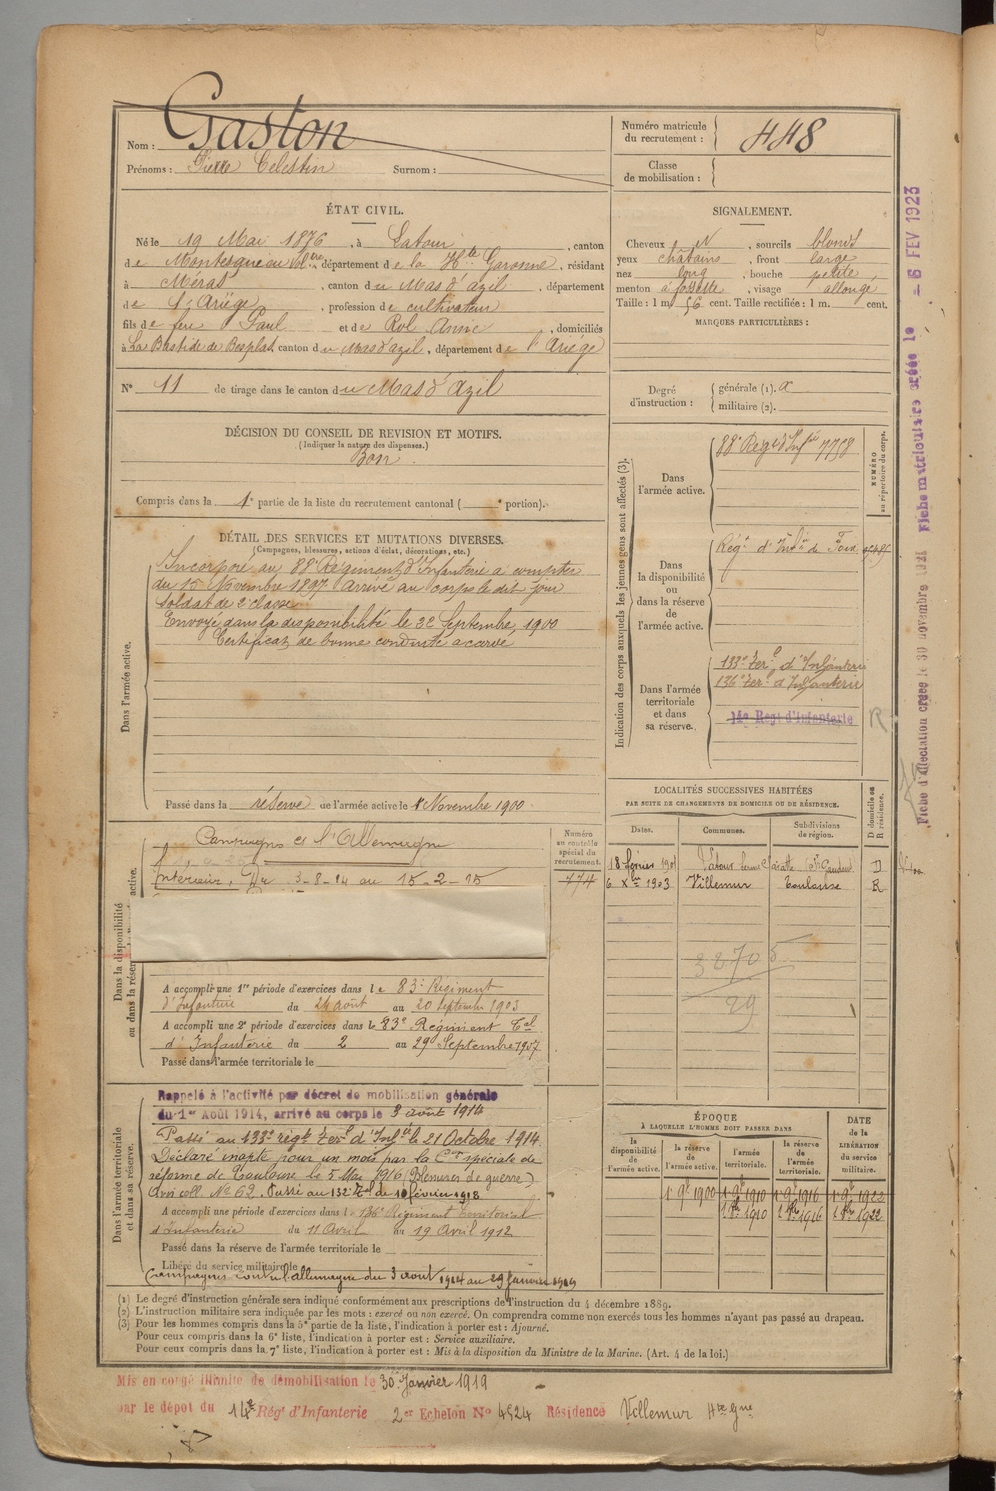 Nom : Gaston
Prénoms : Pierre Celestin Surnom :
Numéro matricule du recrutement : 448
Classe de mobilisation :
ÉTAT CIVIL.
Né le 19 Mai 1876, à Latour, canton
de Montesquieu Volvre, département de la Hte Garonne, résidant
à Méras, canton du Mas d'azil, département
de l'Ariège, profession de cultivateur
fils de feu Paul et de Rol Anne, domiciliés
à La Bastide de Besplas, canton du Mas d'azil, département de l'Ariège
N° 11 de tirage dans le canton du Mas d'Azil
SIGNALEMENT.
Cheveux N, sourcils blonds
yeux châtains, front large
nez long, bouche petite
menton à fossette, visage allongé
Taille : 1 m. 56 cent. Taille rectifiée : 1 m. cent.
MARQUES PARTICULIÈRES :
Degré d'instruction : générale (1). a
militaire (2).
DÉCISION DU CONSEIL DE REVISION ET MOTIFS.
(Indiquer la nature des dispenses.)
Bon
Compris dans la 1e partie de la liste du recrutement cantonal ( e portion).
DÉTAIL DES SERVICES ET MUTATIONS DIVERSES.
(Campagnes, blessures, actions d'éclat, décorations, etc.)
Dans l'armée active.
Incorporé au 88e Régiment d'Infanterie à compter
du 15 Novembre 1897 Arrivé au corps le dit jour
Soldat de 2e classe
Envoyé dans la disponibilité le 22 Septembre 1900
Certificat de bonne conduite accordé
Passé dans la réserve de l'armée active le 1er Novembre 1900.
Indication des corps auxquels les jeunes gens sont affectés (3).
Dans l'armée active.
88e Régt d'Infie 7758
NUMÉRO au répertoire du corps.
Dans la disponibilité ou dans la réserve de l'armée active.
Régt d'Infie de Foix
Dans l'armée territoriale et dans sa réserve.
133e Terl d'Infanterie
136e Terl d'Infanterie
14e Regt d'Infanterie
R
LOCALITÉS SUCCESSIVES HABITÉES
PAR SUITE DE CHANGEMENTS DE DOMICILE OU DE RÉSIDENCE.
Dates. Communes. Subdivisions de région. D domicile ou R résidence.
18 février 1901 Latour St Gaudens D
6 Xbre 1903 Villemur Toulouse R
Dans la disponibilité ou dans la réserve active.
Campagne et l'Allemagne
Intérieur, Du 3-8-14 au 15-2-15
Numéro au contrôle spécial du recrutement.
474
A accompli une 1re période d'exercices dans le 83e Régiment
d'Infanterie du 24 août au 20 septembre 1903
A accompli une 2e période d'exercices dans le 83e Régiment Tal
d'Infanterie du 2 au 29 Septembre 1907
Passé dans l'armée territoriale le
Dans l'armée territoriale et dans sa réserve.
Rappelé à l'activité par décret de mobilisation générale
du 1er Août 1914, arrivé au corps le 3 août 1914
Passé au 133e régt Teral d'Infie le 21 Octobre 1914
Déclaré inapte pour un mois par la Con spéciale de
réforme de Toulouse le 5 Mai 1916 (Blessures de guerre)
Avis coll. No 62. Passé au 132e Tal du 10 février 1918
A accompli une période d'exercices dans le 136e Régiment Territorial
d'Infanterie du 11 Avril au 19 Avril 1912
Passé dans la réserve de l'armée territoriale le
Libéré du service militaire le
Campagnes contre l'allemagne du 3 août 1914 au 29 Janvier 1919
ÉPOQUE
À LAQUELLE L'HOMME DOIT PASSER DANS
la disponibilité de l'armée active. la réserve de l'armée active. l'armée territoriale. la réserve de l'armée territoriale. DATE de la LIBÉRATION du service militaire.
1er 9bre 1900 1er 9bre 1910 1er 9bre 1916 1er 9bre 1922
1910 1916 1922
(1) Le degré d'instruction générale sera indiqué conformément aux prescriptions de l'instruction du 4 décembre 1889.
(2) L'instruction militaire sera indiquée par les mots : exercé ou non exercé. On comprendra comme non exercés tous les hommes n'ayant pas passé au drapeau.
(3) Pour les hommes compris dans la 5e partie de la liste, l'indication à porter est : Ajourné.
Pour ceux compris dans la 6e liste, l'indication à porter est : Service auxiliaire.
Pour ceux compris dans la 7e liste, l'indication à porter est : Mis à la disposition du Ministre de la Marine. (Art. 4 de la loi.)
Mis en congé illimité de démobilisation le 30 Janvier 1919
par le dépot du 14e Régt d'Infanterie 2er Echelon No 4524 Résidence Villemur Hte Gne
Fiche d'affectation créée le 30 novembre 1921 Fiche matriculaire créée le - 6 FEV 1923